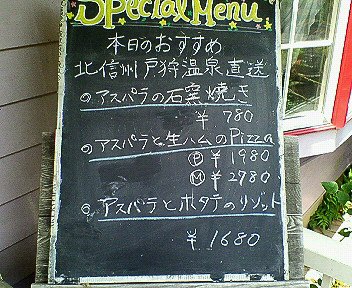 Special Menu
本日のおすすめ
北信州戸狩温泉直送
◎アスパラの石窯焼き
¥780
◎アスパラと生ハムのPizza
Ⓟ ¥1980
Ⓜ ¥2780
◎アスパラとホタテのリゾット
¥1680